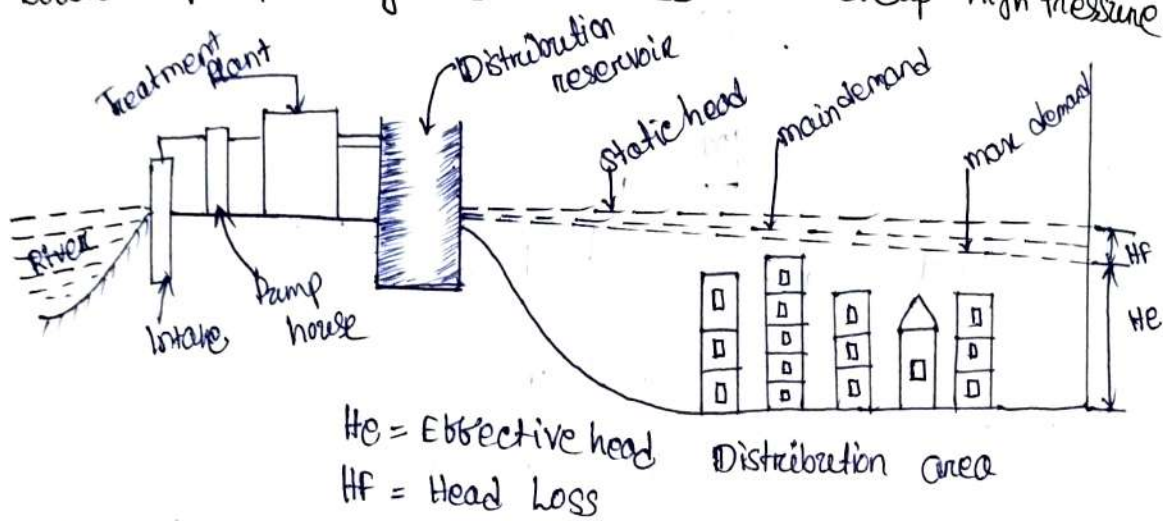 High Pressure
Treatment
Plant
Distribution
reservoir
static head
main demand
max demand
River
Intake
Pump
house
Hf
He
He = Effective head
Hf = Head Loss
Distribution area